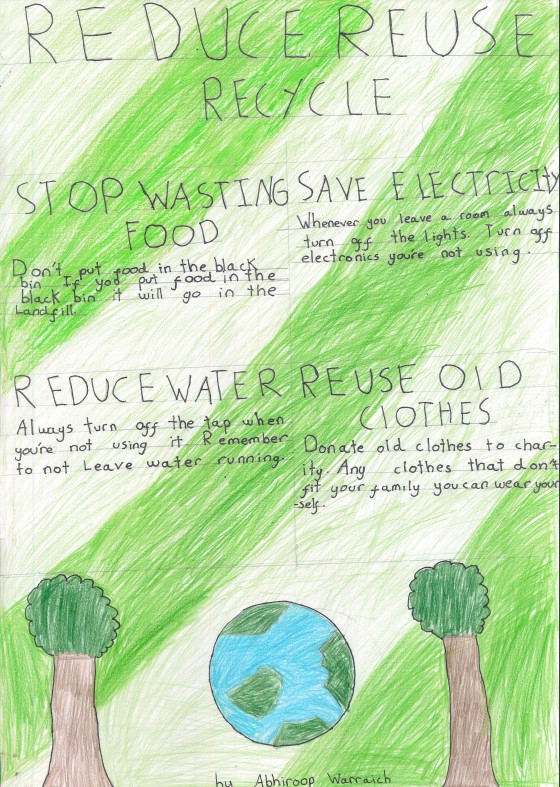 REDUCE REUSE
RECYCLE
STOP WASTING
FOOD
Don't put food in the black
bin If you put food in the
black bin it will go in the
Landfill.
SAVE ELECTRICITY
Whenever you leave a room always
turn off the lights. Turn off
electronics youre not using.
REDUCE WATER
Always turn off the tap when
you're not using it Remember
to not Leave water running.
REUSE OlD
ClOTHES
Donate old clothes to char-
ity. Any clothes that don't
fit your family you can wear your
-self.
by Abhiroop Warraich